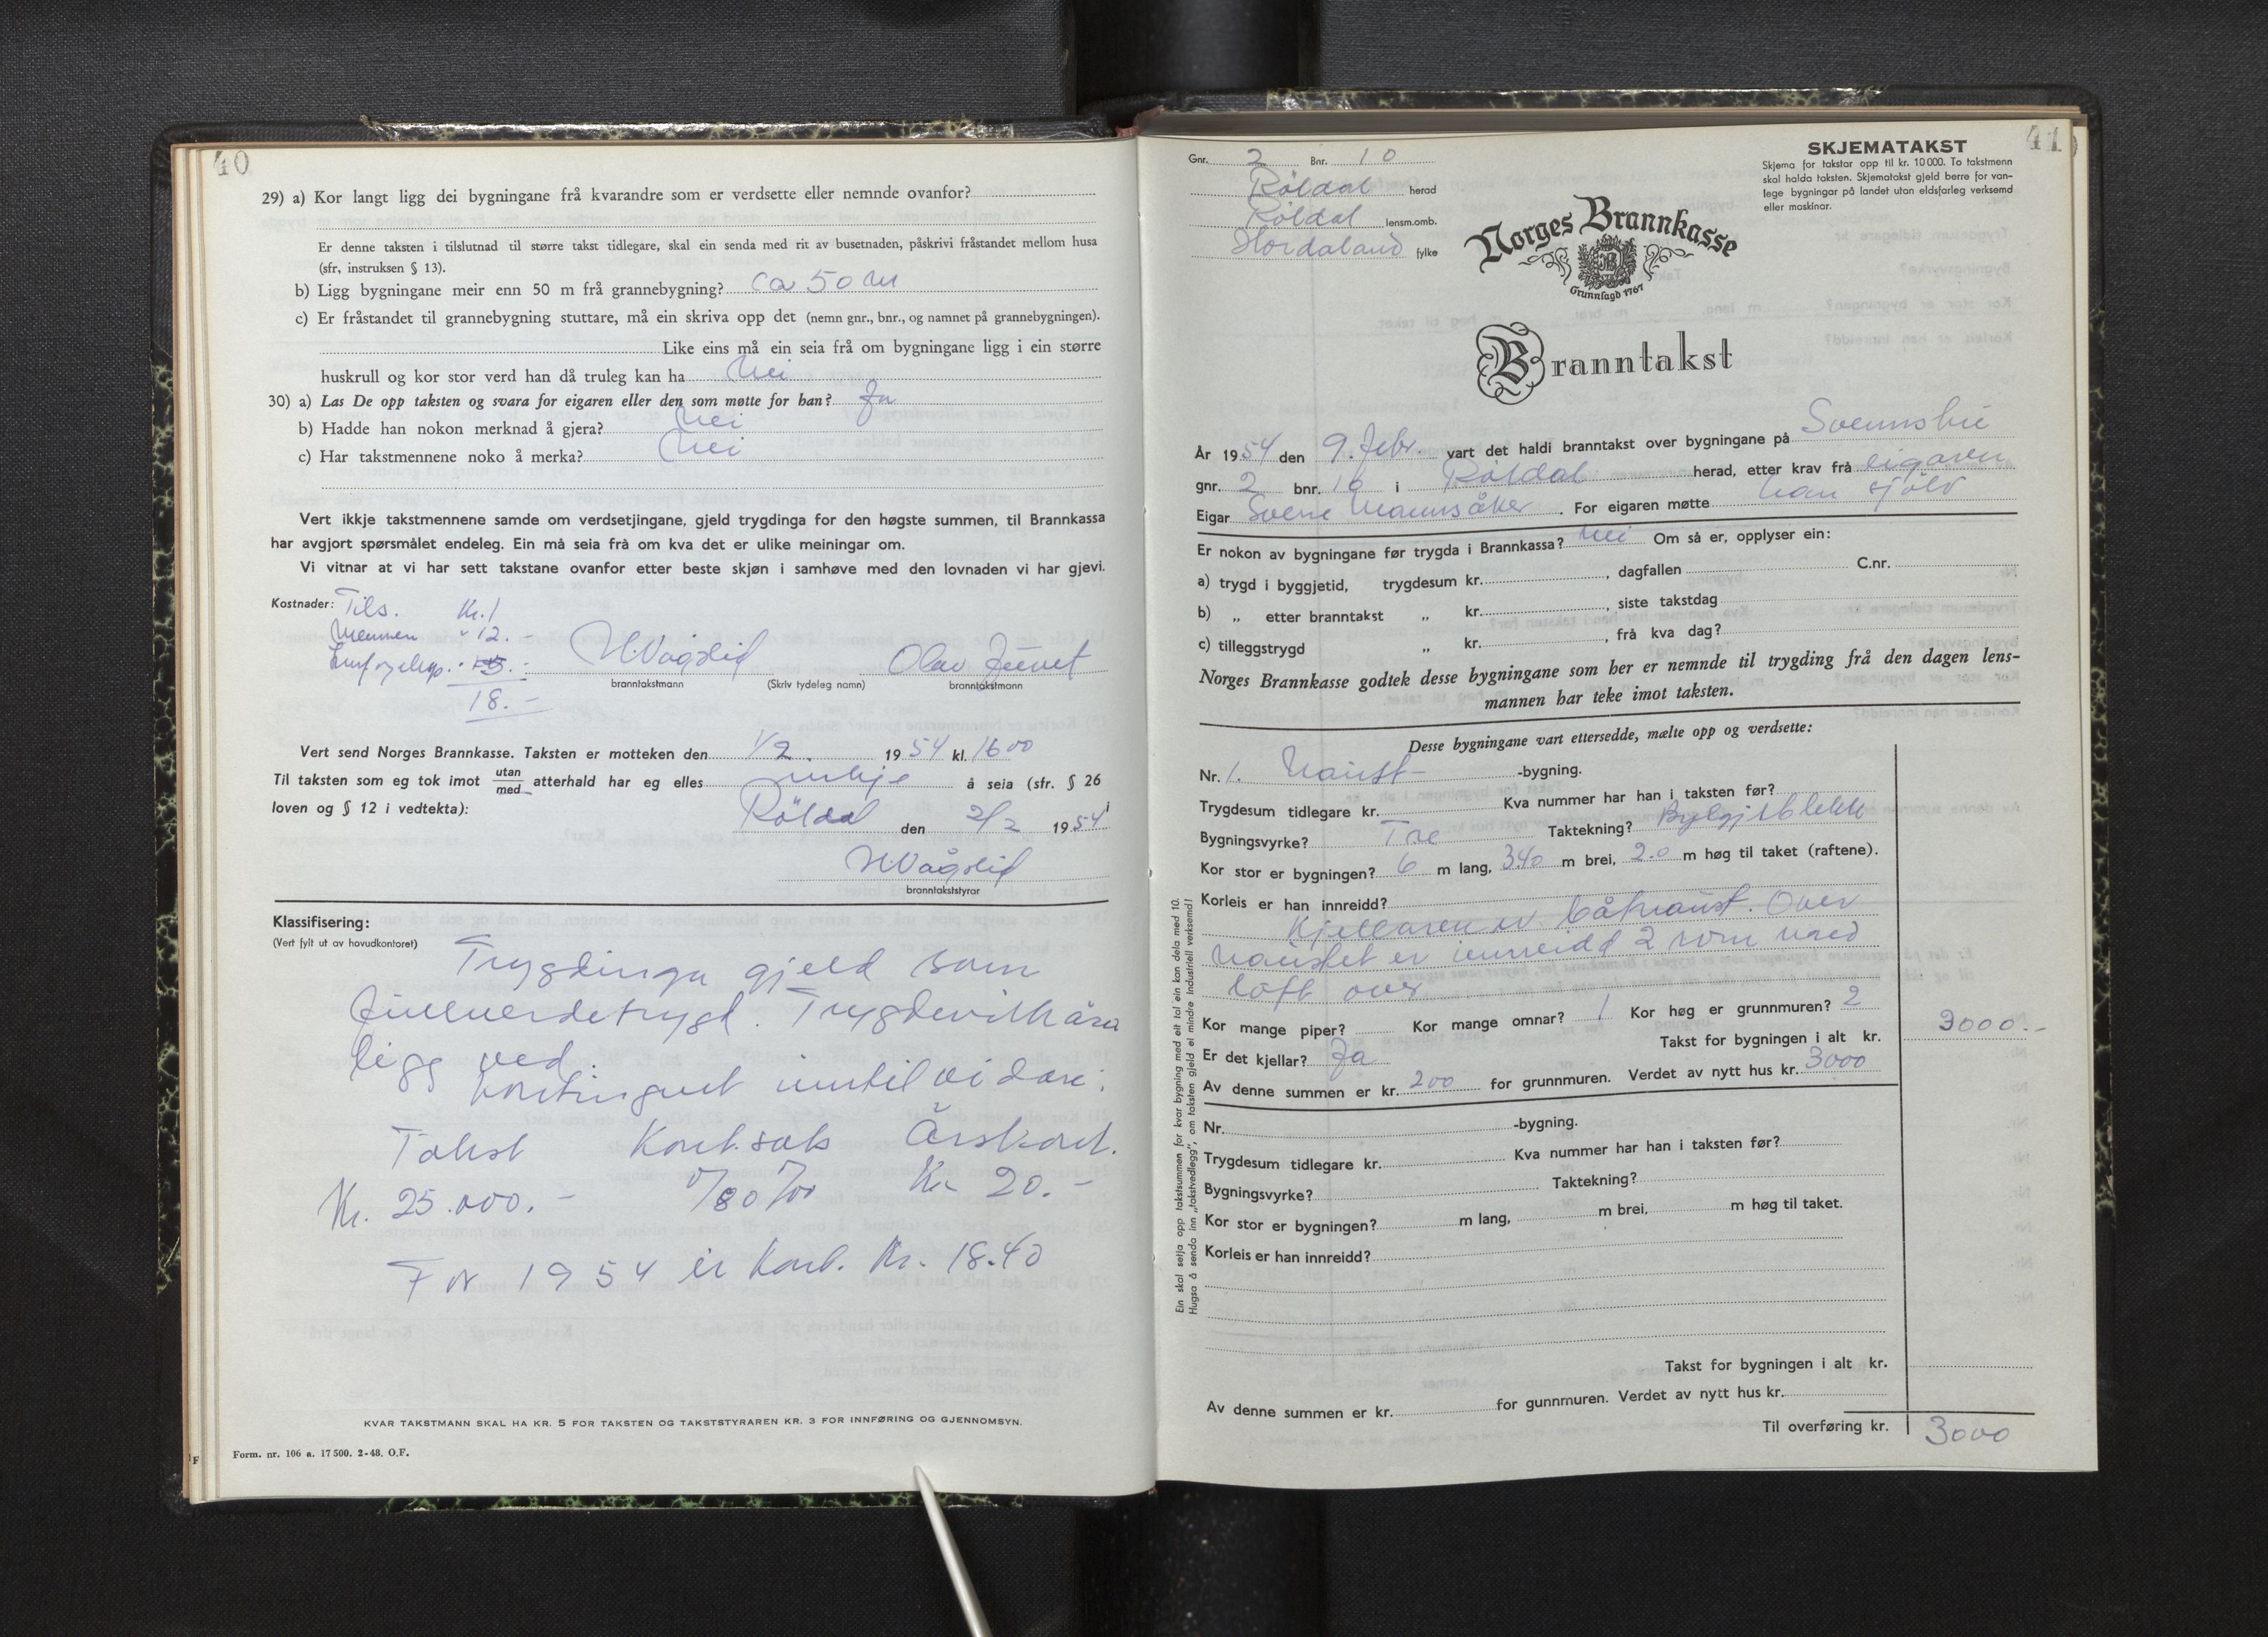 40
29) a) Kor langt ligg dei bygningane frå kvarandre som er verdsette eller nemnde ovanfor?
Er denne taksten i tilslutnad til større takst tidlegare, skal ein senda med rit av busetnaden, påskrivi fråstandet mellom husa
(sfr, instruksen § 13).
b) Ligg bygningane meir enn 50 m frå grannebygning? ca 50 m
c) Er fråstandet til grannebygning stuttare, må ein skriva opp det (nemn gnr., bnr., og namnet på grannebygningen).
Like eins må ein seia frå om bygningane ligg i ein større
huskrull og kor stor verd han då truleg kan ha Nei
30) a) Las De opp taksten og svara for eigaren eller den som møtte for han? Ja
b) Hadde han nokon merknad å gjera? Nei
c) Har takstmennene noko å merka? Nei
Vert ikkje takstmennene samde om verdsetjingane, gjeld trygdinga for den høgste summen, til Brannkassa
har avgjort spørsmålet endeleg. Ein må seia frà om kva det er ulike meiningar om.
Vi vitnar at vi har sett takstane ovanfor etter beste skjøn i samhøve med den lovnaden vi har gjevi.
Kostnader: Tils. Kr. 1
Mennen " 12.-
18.-
H Vågslid Olav Juvet
branntakstmann (Skriv tydeleg namn) branntakstmann
Vert send Norges Brannkasse. Taksten er motteken den 1/2 1954 kl. 16 00
Til taksten som eg tok imot utan/med atterhald har eg elles inkje å seia (sfr. § 26
loven og § 12 i vedtekta):
Röldal den 2/2 1954
H Vågslid
branntakststyrar
Klassifisering:
(Vert fylt ut av hovudkontoret)
Trygdinga gjeld som
fullverdetrygd. Trygdevilkåra
ligg ved.
Kontingent inntil vidare:
Takst Kont.sats Årskont.
Kr. 25.000.- 0/80 %00 Kr 20.-
For 1954 er Kont. Kr. 18.40
KVAR TAKSTMANN SKAL HA KR. 5 FOR TAKSTEN OG TAKSTSTYRAREN KR. 3 FOR INNFØRING OG GJENNOMSYN.
Form. nr. 106 a. 17 500. 2-48. O.F.
41
Gnr. 2 Bnr. 10
Röldal herad
Röldal lensm.omb.
Hordaland fylke
SKJEMATAKST
Skjema for takstar opp til kr. 10 000. To takstmenn
skal halda taksten. Skjematakst gjeld berre for van-
lege bygningar på landet utan eldsfarleg verksemd
eller maskinar.
Norges Brannkasse
Grunnlagd 1767
Branntakst
År 1954 den 9. febr. vart det haldi branntakst over bygningane på
gnr. 2 bnr. 10 i Röldal herad, etter krav frå eigaren
Eigar Svene Mannsåker. For eigaren møtte han sjölv
Er nokon av bygningane før trygda i Brannkassa? Nei Om så er, opplyser ein:
a) trygd i byggjetid, trygdesum kr. , dagfallen C.nr.
b) „ etter branntakst „ kr. , siste takstdag
c) tilleggstrygd „ kr. , frå kva dag?
Norges Brannkasse godtek desse bygningane som her er nemnde til trygding frå den dagen lens-
mannen har teke imot taksten.
Desse bygningane vart ettersedde, mælte opp og verdsette:
Nr. 1. Naust- -bygning.
Trygdesum tidlegare kr. Kva nummer har han i taksten før?
Bygningsvyrke? Tre Taktekning? Bylgjeblekk
Kor stor er bygningen? 6 m lang, 3.40 m brei, 2.0 m høg til taket (raftene).
Korleis er han innreidd?
Kjellaren er båtnaust. Over
naustet er innreidd 2 rom med
loft over
Kor mange piper? Kor mange omnar? 1 Kor høg er grunnmuren? 2
Er det kjellar? Ja Takst for bygningen i alt kr. 3000.-
Av denne summen er kr. 200 for grunnmuren. Verdet av nytt hus kr. 3000
Nr. -bygning.
Trygdesum tidlegare kr. Kva nummer har han i taksten før?
Bygningsvyrke? Taktekning?
Kor stor er bygningen? m lang, m brei, m høg til taket.
Korleis er han innreidd?
Takst for bygningen i alt kr.
Av denne summen er kr. for gunnmuren. Verdet av nytt hus kr.
Til overføring kr. 3000
Ein skal setja opp takstsummen for kvar bygning med eit tal ein kan dela med 10.
Hugsa å senda inn „takstvedlegg”, om taksten gjeld ei mindre industriell verksemd!